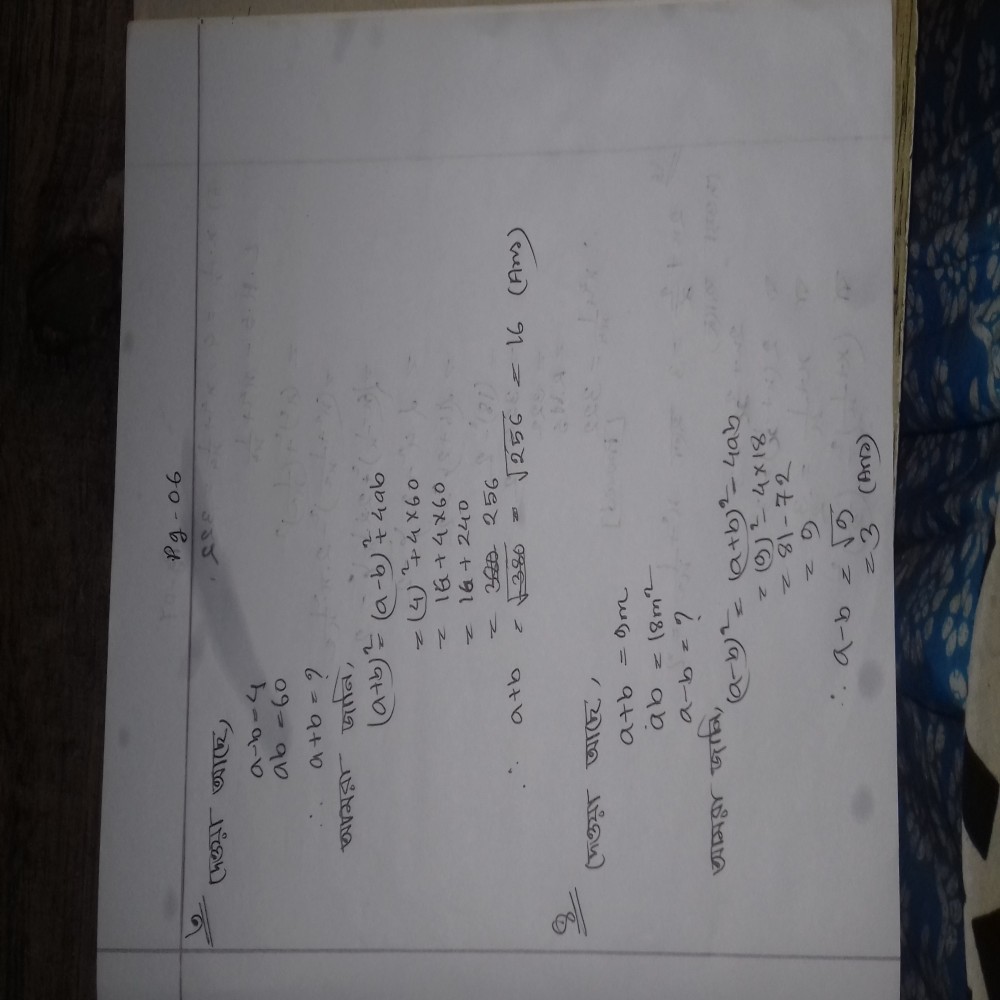 Pg-06
৩
দেওয়া আছে,
a-b=4
ab=60
∴ a+b=?
আমরা জানি,
(a+b)²=(a-b)²+4ab
=(4)²+4×60
= 16+4×60
= 16+240
= 256
∴ a+b = √256 = 16 (Ans)
দেওয়া আছে,
a+b = 9m
ab = 18m²
a-b = ?
আমরা জানি,
(a-b)² = (a+b)²-4ab
= (9)²-4×18
= 81-72
= 9
∴ a-b = √9
= 3 (Ans)